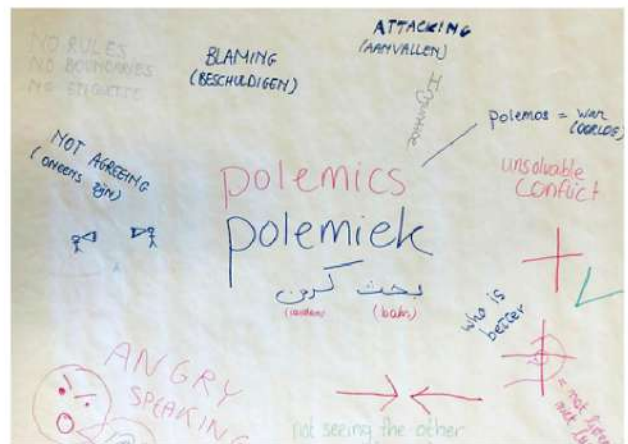 NO RULES
NO BOUNDARIES
NO ETIQUETTE
BLAMING
(BESCHULDIGEN)
ATTACKING
(AANVALLEN)
Ignorance
polemos = war
(OORLOG)
NOT AGREEING
(ONEENS ZIJN)
polemics
polemiek
unsolvable
conflict
بحث كردن
(bahs)
who is
better
ANGRY
SPEAKING
not seeing the other
= not